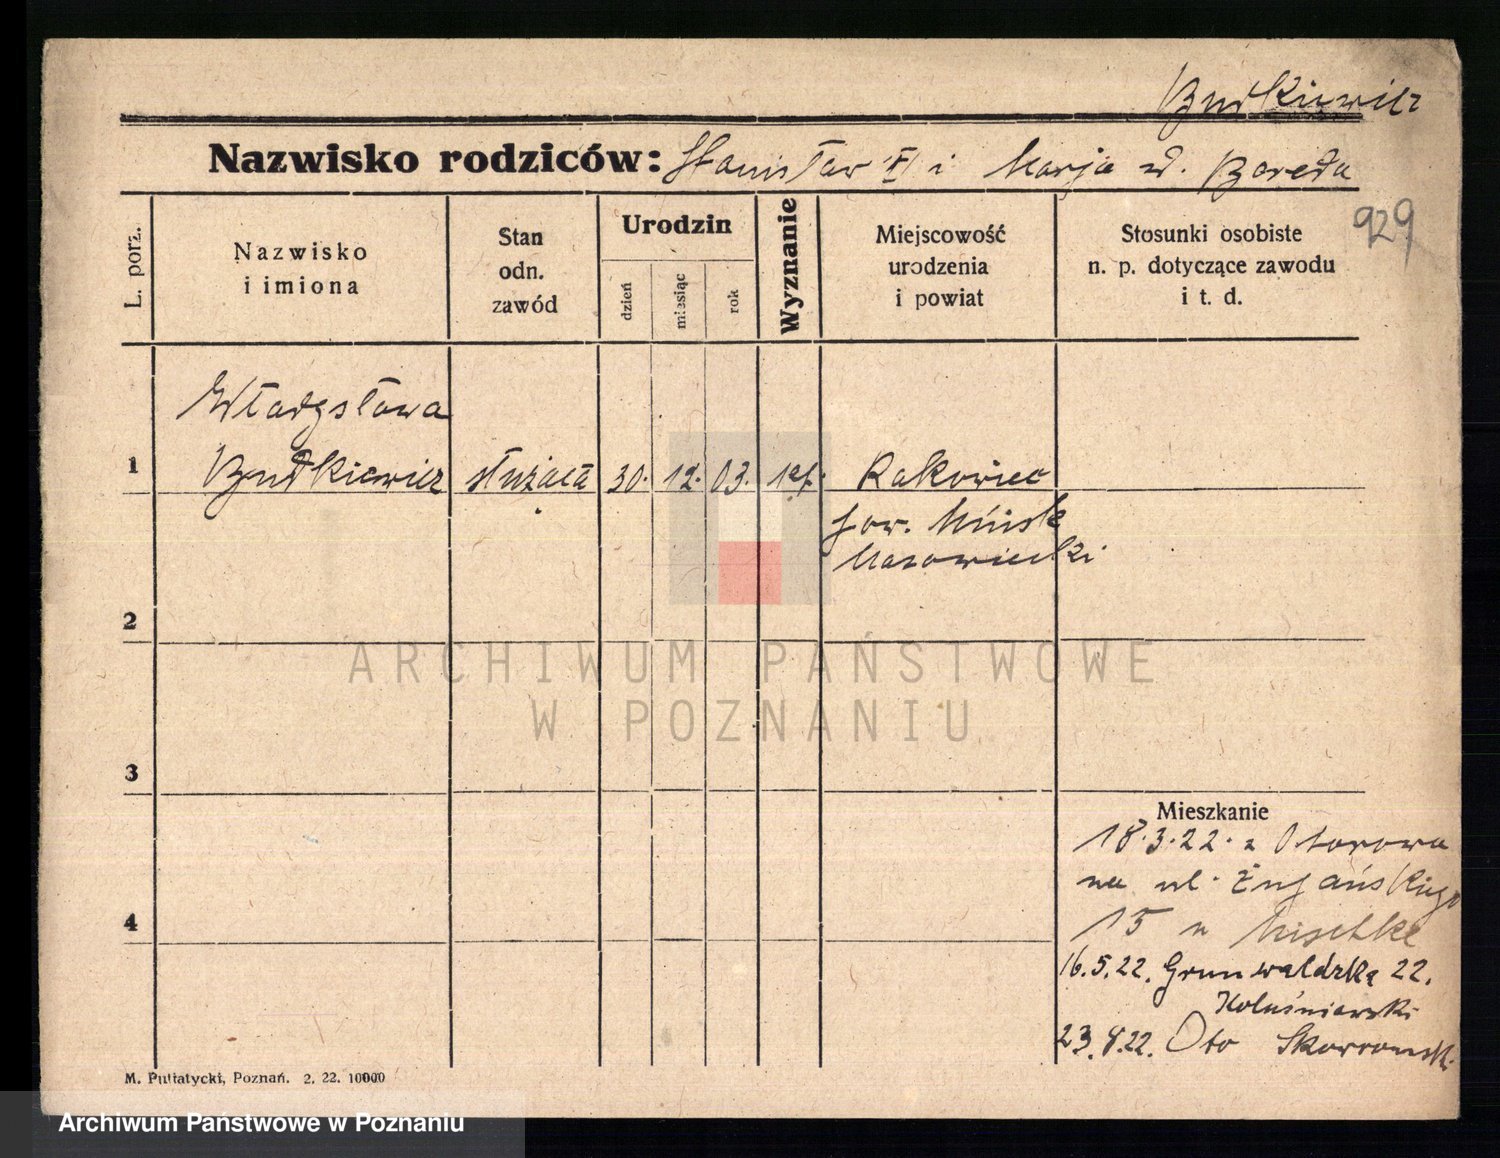 Budkiewicz
Nazwisko rodziców: Stanisław i Marja zd. Boreda
929
L. porz.
Nazwisko
i imiona
Stan
odn.
zawód
Urodzin
dzień
miesiąc
rok
Wyznanie
Miejscowość
urodzenia
i powiat
Stosunki osobiste
n. p. dotyczące zawodu
i t. d.
Władysława
1 Budkiewicz służąca 30. 12. 03. Rakowiec
pow. Mińsk
Mazowiecki
2
ARCHIWUM PAŃSTWOWE
W POZNANIU
3
Mieszkanie
18.3.22. z Otorowa
na ul. Żupańskiego
4
15 u Nischke
16.5.22. Grunwaldzka 22.
23. 22. Oto
M. Putiatycki, Poznań. 2. 22. 10000
Archiwum Państwowe w Poznaniu